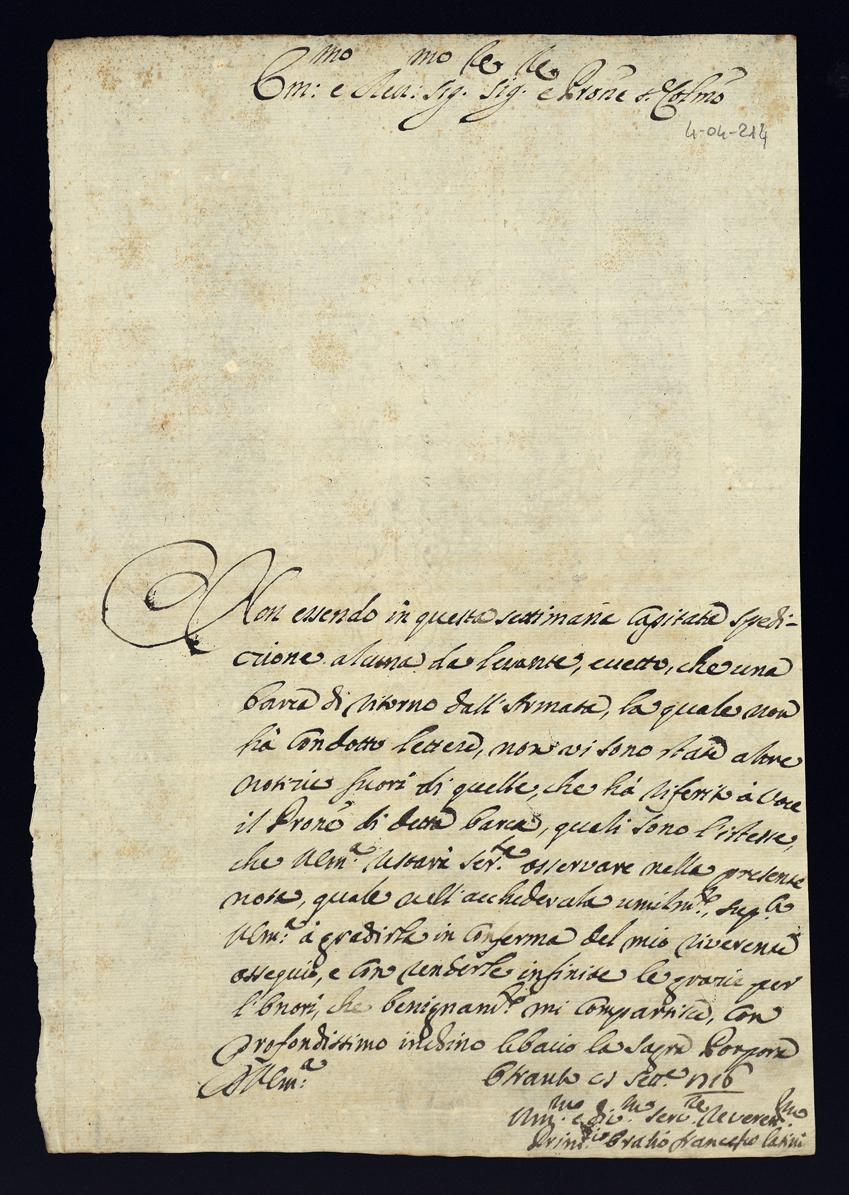 Em:mo e Reu:mo Sig.re Sig.re e Prone Colmo
4-04-214
Non essendo in questa settimana Capitata spedi-
zione alcuna da levante, eccetto, che una
barca di ritorno dall'Armata, la quale non
hà Condotto lettere, non vi sono state altre
notizie fuori di quelle, che hà riferite à voce
il Prone di detta barca, quali sono l'istesse,
che V Em:a restarà ser:ta osservare nella presente
nota, quale nell'acchiudercela umilm:te, sup:co
V Em:a à gradirla in Conferma del mio riverente
ossequio, e Con renderle infinite le grazie per
l'onori, che benignam:te mi Compartisce, Con
profondissimo inchino le bacio la Sagra Porpora
Di V Em:a
Otranto 21 Sett.e 1716
Um:mo e di:mo Ser:re Reveren:mo
Oratio Francesco